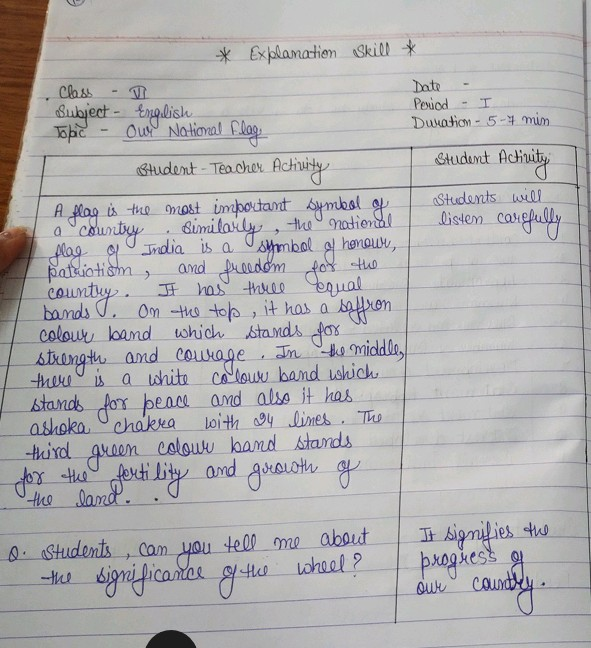 * Explanation Skill *
Class - VI
Subject - English
Topic - Our National Flag
Date -
Period - I
Duration - 5-7 min
Student-Teacher Activity
A flag is the most important symbol of
a country. Similarly, the national
flag of India is a symbol of honour,
patriotism, and freedom for the
country. It has three equal
bands. On the top, it has a saffron
colour band which stands for
strength and courage. In the middle,
there is a white colour band which
stands for peace and also it has
ashoka chakra with 24 lines. The
third green colour band stands
for the fertility and growth of
the land..
Q. Students, can you tell me about
the significance of the wheel?
Student Activity
Students will
listen carefully
It signifies the
progress of
our country.